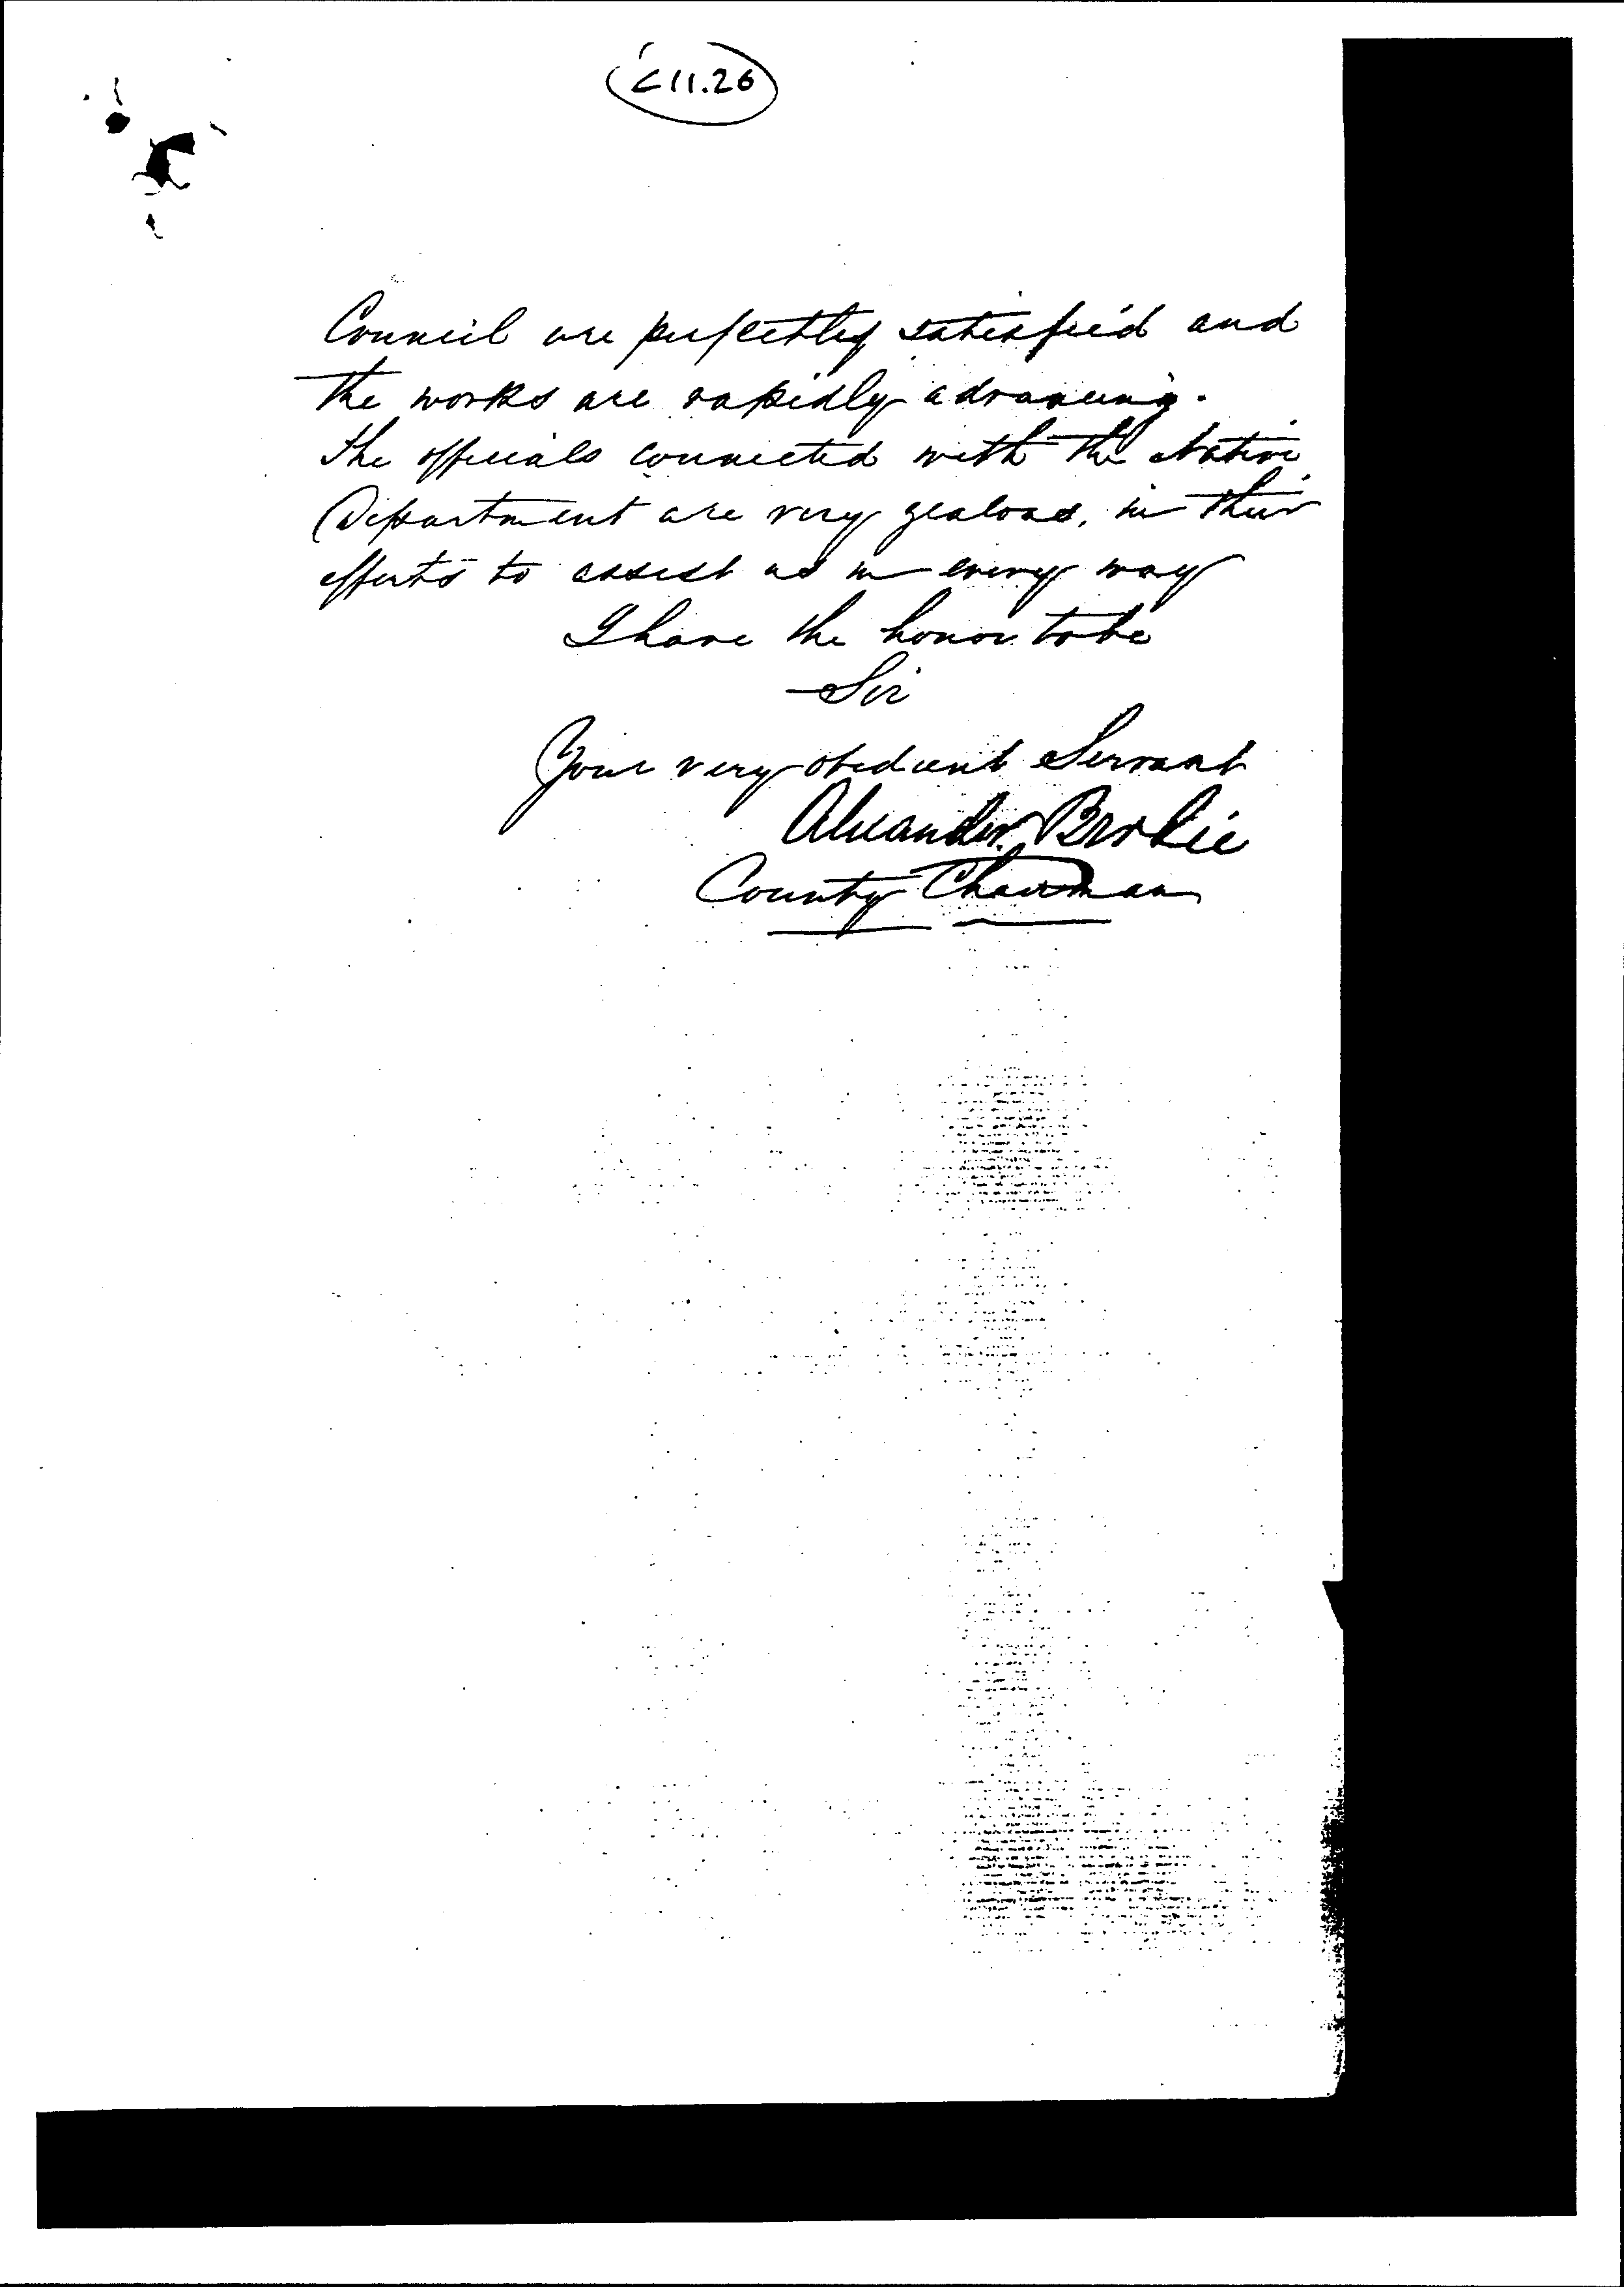 C11.26
Council are perfectly satisfied and
the works are rapidly advancing.
The officials connected with the Native
Department are very zealous, in their
efforts to assist us in every way
I have the honor to be
Sir
Your very obedient Servant
Alexander Brodie
County Chairman